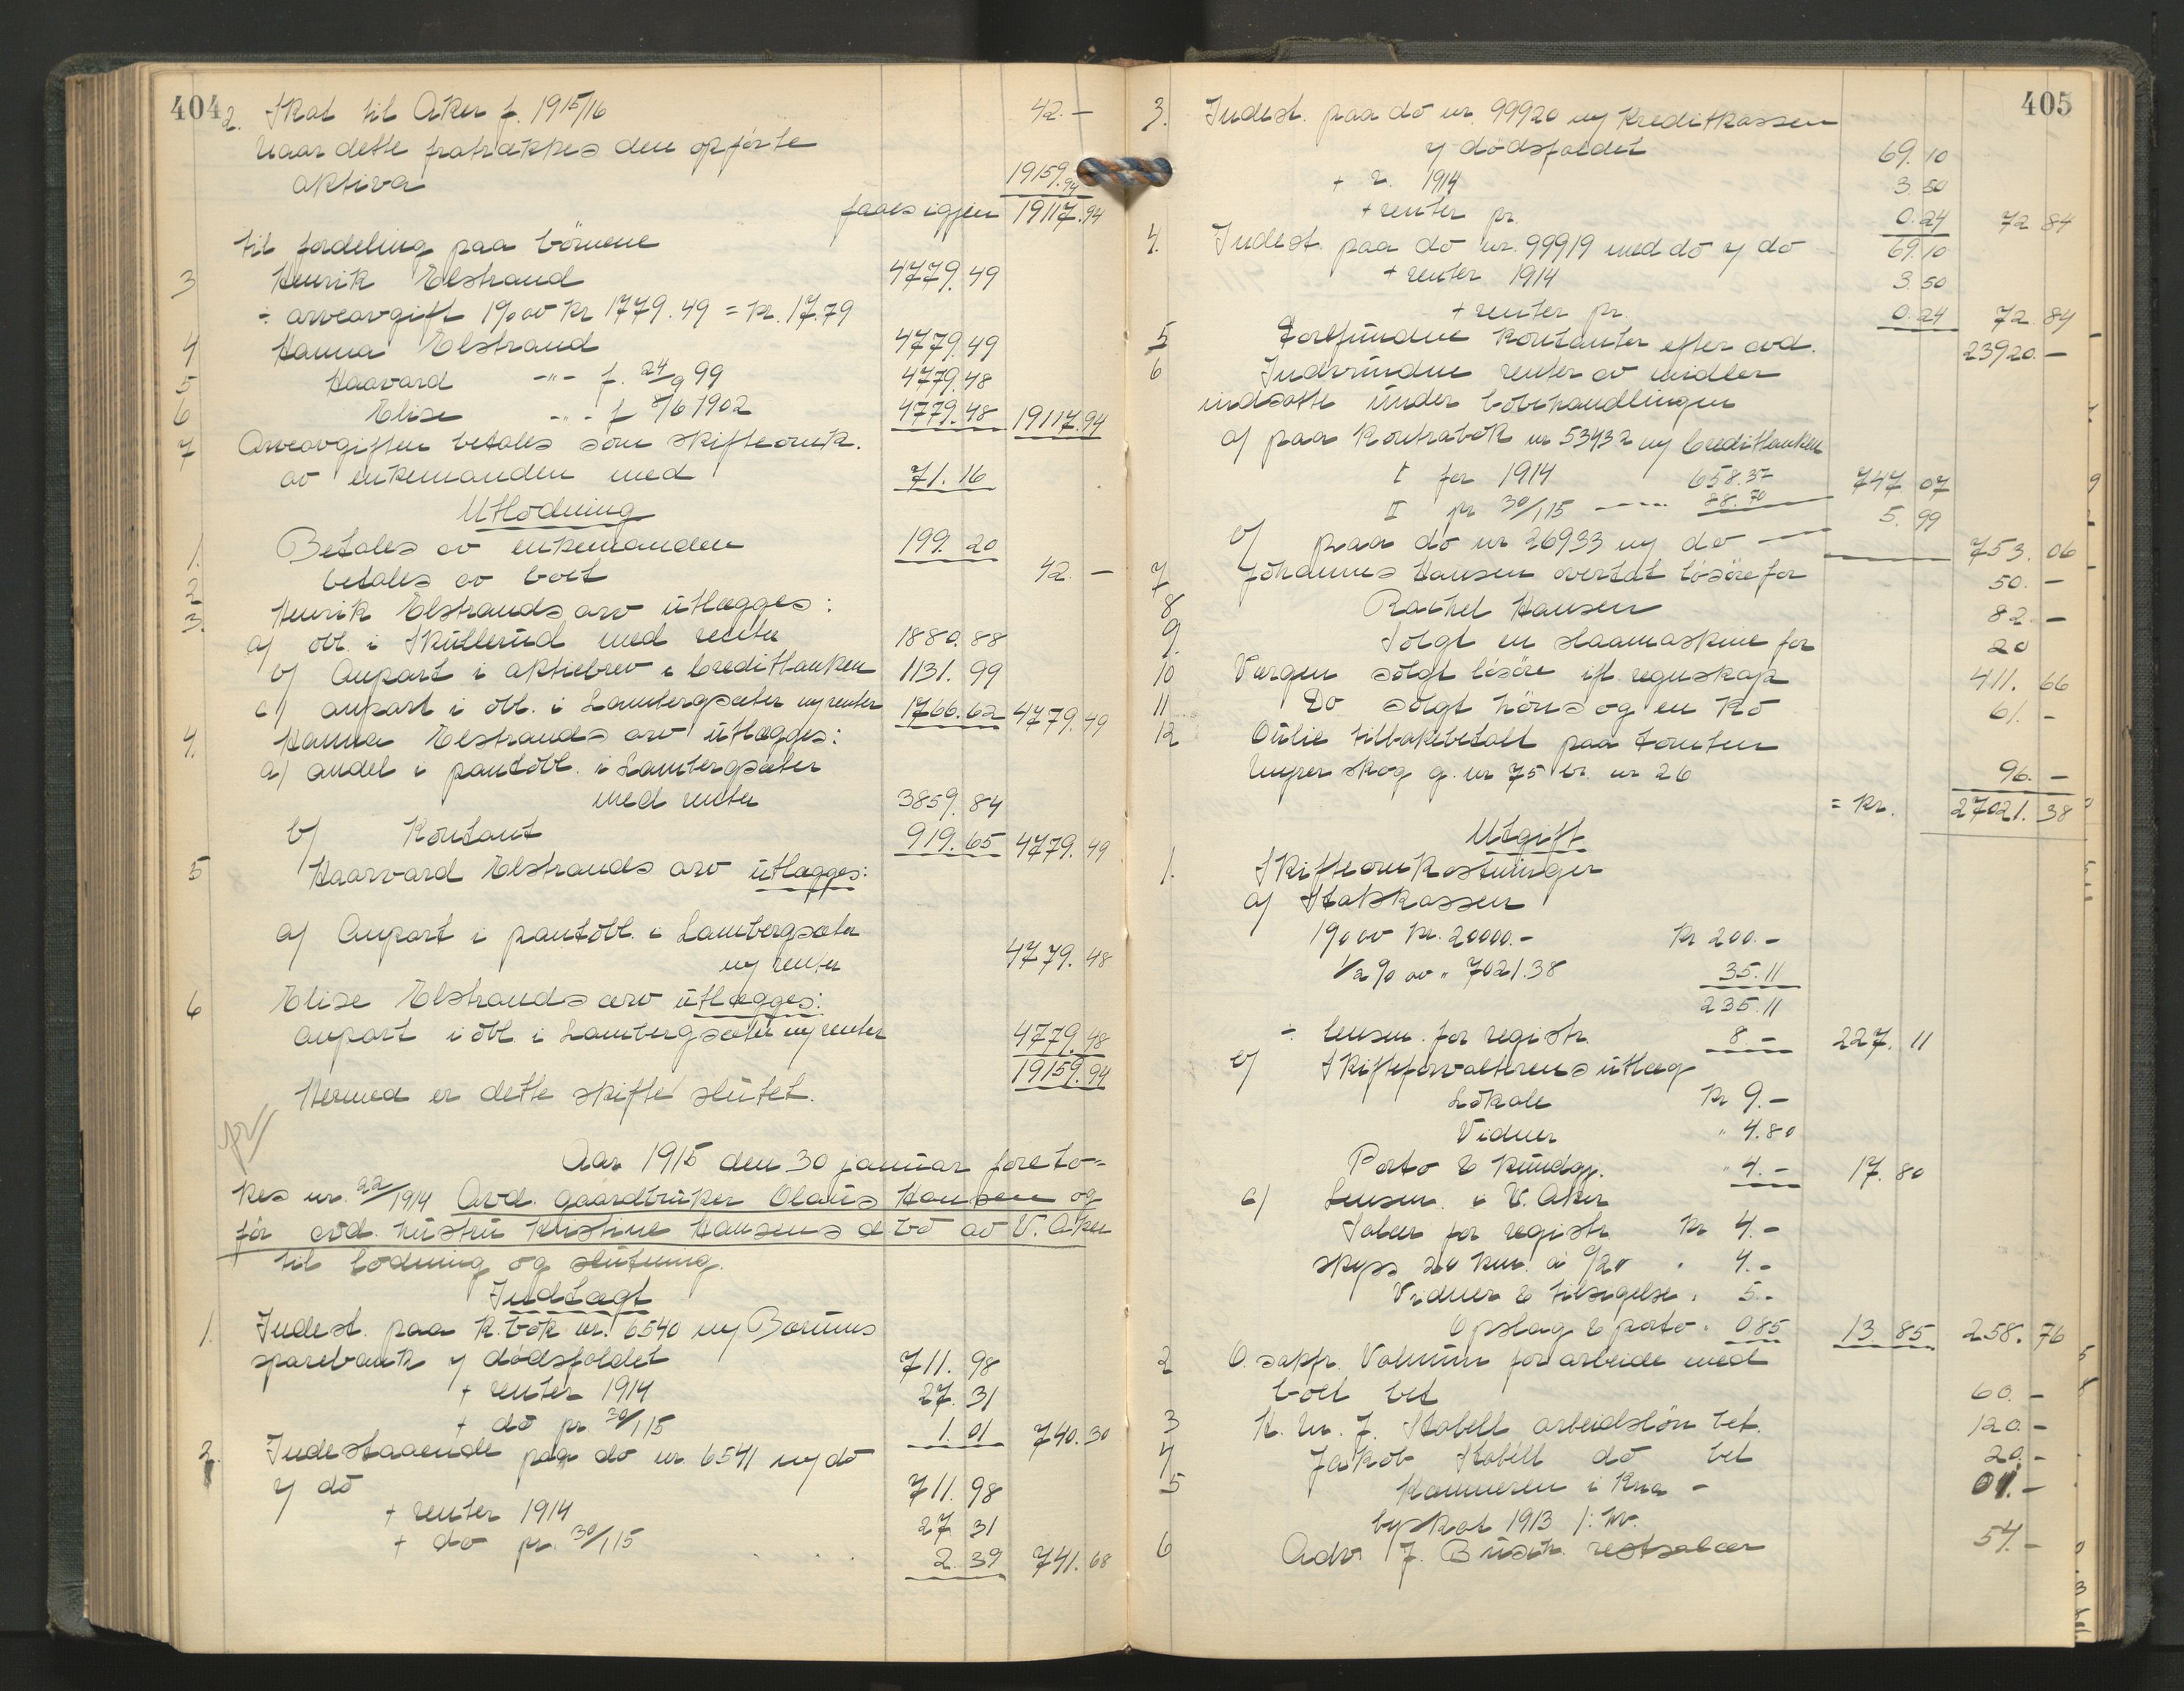 404
2. Skat til Aker f. 1915/16 42.-
Naar dette fratrækkes den opførte
aktiva 19159.94
faaes igjen 19117.94
til fordeling paa børnene
3 Henrik Elstrand 4779.49
÷ arveavgift 1% av Kr 1779.49 = Kr. 17.79
4 Hanna Elstrand 4779.49
5 Haavard -"- f. 24/9 99 4779.48
6 Elise -"- f 8/6 1902 4779.48 19117.94
7 Arveavgiften betales som skifteomk.
av enkemanden med 71.16
Utlodning
1. Betales av enkemanden 199.20
2 betales av boet 42.-
3. Henrik Elstrands arv utlægges:
a) obl. i Skullerud med renter 1880.88
b) Anpart i aktiebrev i Creditbanken 1131.99
c) anpart i obl. i Lambergsæter m/renter 1766.62 4779.49
4. Hanna Elstrands arv utlægges:
a) andel i pantobl. i Lambergsæter
med renter 3859.84
b) Kontant 919.65 4779.49
5 Haavard Elstrands arv utlægges:
a) Anpart i pantobl. i Lambergsæter
m/ renter 4779.48
6 Elise Elstrands arv utlægges:
anpart i obl. i Lambergsæter m/renter 4779.48
19159.94
Hermed er dette skifte sluttet.
Aar 1915 den 30 januar foreto=
kes nr. 22/1914 Avd. gaardbruker Olaus Hansen og
før avd. hustru Kristine Hansens d.bo av V. Aker
til lodning og slutning.
Indtægt
1. Indest. paa K.bok nr. 6540 m/ Bærums
sparebank v/ dødsfaldet 711.98
+ renter 1914 27.31
+ do pr. 30/1 15 1.01 740.30
2. Indestaaende paa do nr 6541 m/ do
v/ do 711.98
+ renter 1914 27.31
+ do pr. 30/1 15 2.39 741.68
405
3. Indest. paa do nr. 99920 m/ Kreditkassen
v/ dødsfaldet 69.10
+ r. 1914 3.50
+ renter pr 0.24 72.84
4. Indest. paa do nr. 99919 med do v/ do 69.10
+ renter 1914 3.50
+ renter pr. 0.24 72.84
5 Forefundne kontanter efter avd. 23920.-
6 Indvundne renter av midler
indsatte under bobehandlingen
a) paa Kontrabok nr 53432 m/ Creditbanken
I for 1914 658.37
II pr 30/1 15 88.70 747.07
b) paa do nr 26933 m/ do 5.99 753.06
7 Johannes Hansen overtat løsøre for 50.-
8 Rachel Hansen 82.-
9. Solgt en slaamaskine for 20
10 Værgen solgt løsøre ifl regnskap 411.66
11 Do solgt høns og en ko 61.-
12 Oulie tilbakebetalt paa tomten
Unger skog g. nr 75 br. nr 26 96.-
= Kr. 27021.38
Utgift
1. Skifteomkostninger
a) Statskassen
1% av Kr. 20000.- Kr 200.-
1/2 % av " 7021.38 35.11
235.11
÷ lensm. for registr. 8- 227.11
b) Skifteforvalterens utlæg
Lokale Kr 9.-
Vidner " 4.80
Porto & kundgj. " 4.- 17.80
c) Lensm. i V. Aker
Salær for registr. Kr 4.-
skyss 20 km. a 0/20 " 4.-
Vidner & tilsigelse " 5.-
Opslag & porto " 0.85 13.85 258.76
2 O. sakfr. Vahnum for arbeide med
boet bet 60.-
3 K. M. F. Stabell arbeidsløn bet. 120.-
4 Jakob Stabell do bet 20.-
5 Kæmneren i Krna -
byskat 1913 1. hv.
6 Adv. F. Busch. restsalær 54.-